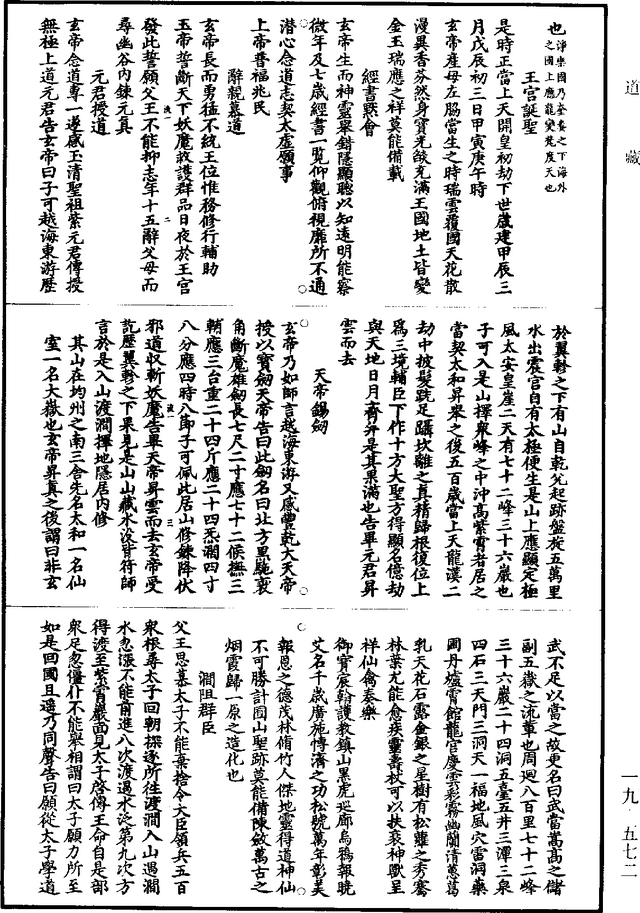 道藏
也淨樂國乃奎婁之下海外
之國上應龍變梵度天也
王宮誕聖
是時正當上天開皇初劫下世歲建甲辰三
月戊辰初三日甲寅庚午時
玄帝產母左脇當生之時瑞雲覆國天花散
漫異香芬然身寶光燄充滿王國地土皆變
金玉瑞應之祥莫能備載
經書默會
玄帝生而神靈舉錯隱顯聰以知遠明能察
微年及七歲經書一覽仰觀俯視靡所不通
潛心念道志契太虛願事
上帝普福兆民
辭親慕道
玄帝長而勇猛不統王位惟務修行輔助
玉帝誓斷天下妖魔救護群品日夜於王宮
發此誓願父王不能抑志年十五辭父母而
尋幽谷內鍊元真
元君授道
玄帝念道專一遂感玉清聖祖紫元君傳授
無極上道元君告玄帝曰子可越海東游歷
於翼軫之下有山自乾兊起跡盤旋五萬里
水出震宮自有太極便生是山上應顯定極
風太安皇崖二天有七十二峰三十六巖也
子可入是山擇眾峰之中沖高紫霄者居之
當契太和昇舉之後五百歲當上天龍漢二
劫中披髮跣足躡坎離之真精歸根復位上
爲三境輔臣下作十方大聖方得顯名億劫
與天地日月齊并是其果滿也告畢元君昇
雲而去
天帝錫劒
玄帝乃如師言越海東游又感豐乾大天帝
授以寶劒天帝告曰此劒名曰北方黑馳裘
角斷魔雄劒長七尺二寸應七十二候撫三
輔應三台重二十四斤應二十四炁濶四寸
八分應四時八節子可佩此居山修鍊降伏
邪道収斬妖魔告畢天帝昇雲而去玄帝受
訖歷翼軫之下果見是山山藏水沒皆符師
言於是入山渡澗擇地隱居內修
其山在均州之南三舍先名太和一名仙
室一名大嶽也玄帝昇真之後謂曰非玄
武不足以當之故更名曰武當嵩高之儲
副五嶽之流輩也周迴八百里七十二峰
三十六巖二十四洞五臺五井三潭三泉
四石三天門三洞天一福地風穴雷洞藥
圃丹爐霄館龍宮慶雲彩霧幽蘭清蕙葛
乳天花石露金銀之星樹有松蘿之秀騫
林葉尤能愈疾靈壽杖可以扶衰神獸呈
祥仙禽奏樂
御寶宸翰護教鎮山黑虎巡廊烏鴉報曉
艾名千歲廣施博濟之功松號萬年彰美
報恩之德茂林脩竹人傑地靈得道神仙
不可勝計囿山聖跡莫能備陳斂萬古之
烟霞歸一原之造化也
澗阻群臣
父王思慕太子不能棄捨令大臣領兵五百
衆根尋太子回朝探逐所往渡澗入山遇澗
水忽漲不能前進八次渡過水泛第九次方
得渡至紫霄巖面見太子啓傳王命自是部
衆足忽僵仆不能舉相謂曰太子願力所至
如是回國且還乃同聲告曰願從太子學道
一九·五七二